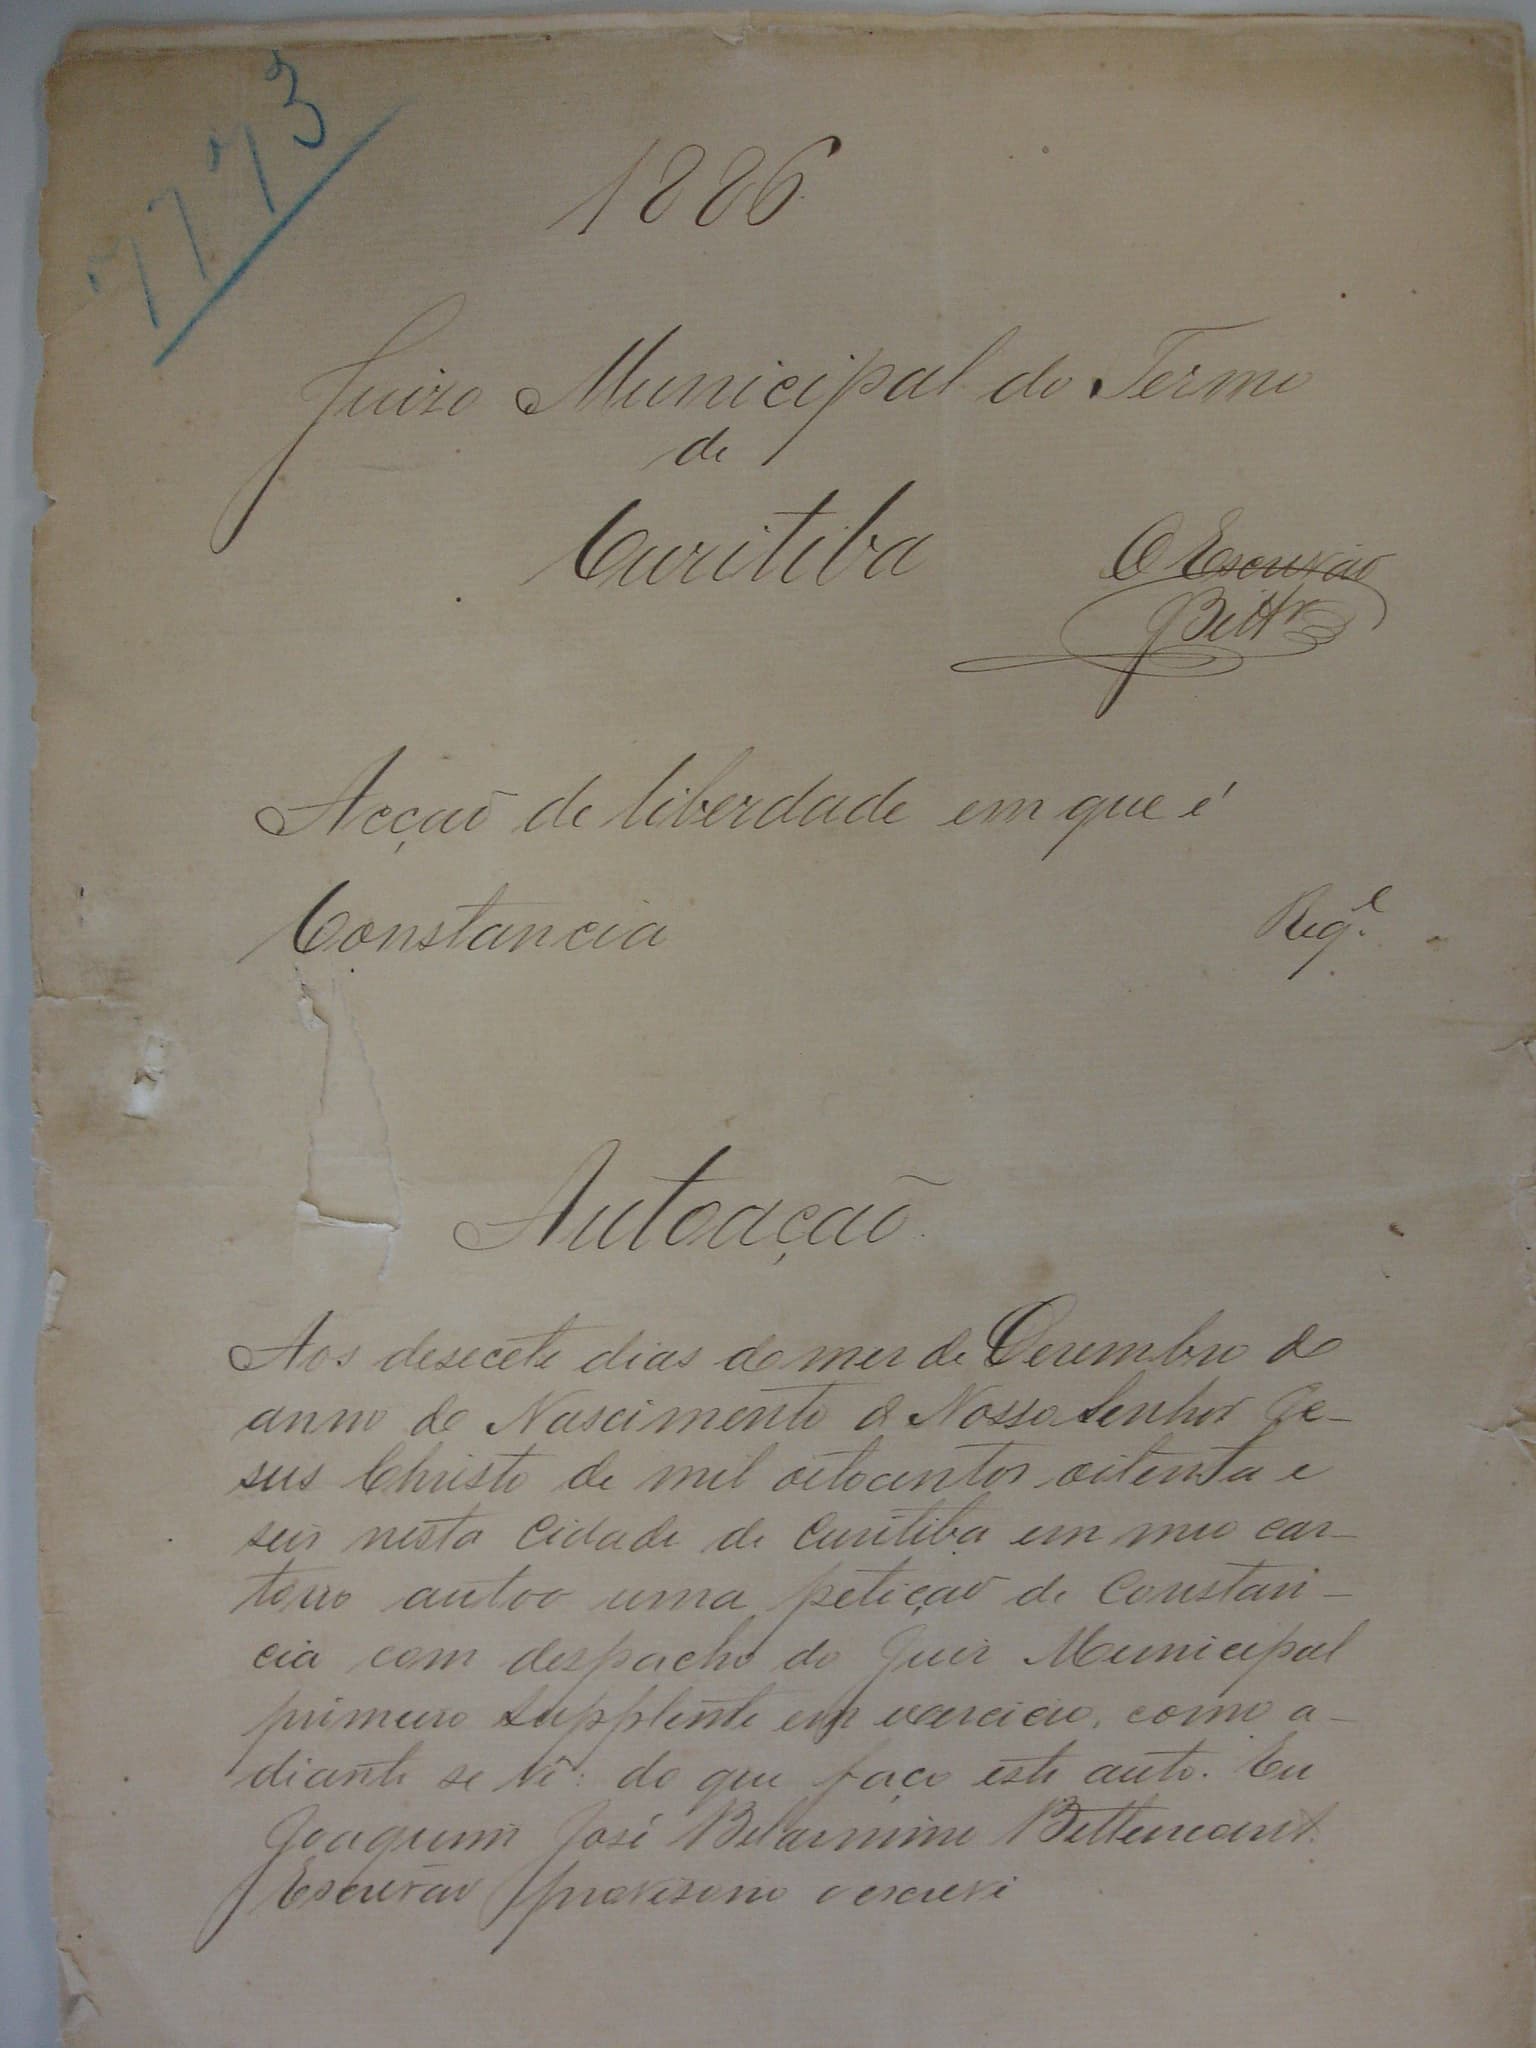 7773
1886
Juizo Municipal do Termo
de
Curitiba
O Escrivão
Bittr
Acção de liberdade em que é
Constancia Reqe.
Autoação.
Aos desecete dias do mez de Dezembro do
anno do Nascimento de Nosso Senhor Je-
sus Christo de mil oitocentos oitenta e
seis nesta Cidade de Curitiba em meu car-
torio autoo uma petição de Constan-
cia com despacho do Juiz Municipal
primeiro supplente em exercicio, como a-
diante se vê: do que faço este auto. Eu
Joaquim José Belarmino Bittencourt.
Escrivão provisorio o escrevi